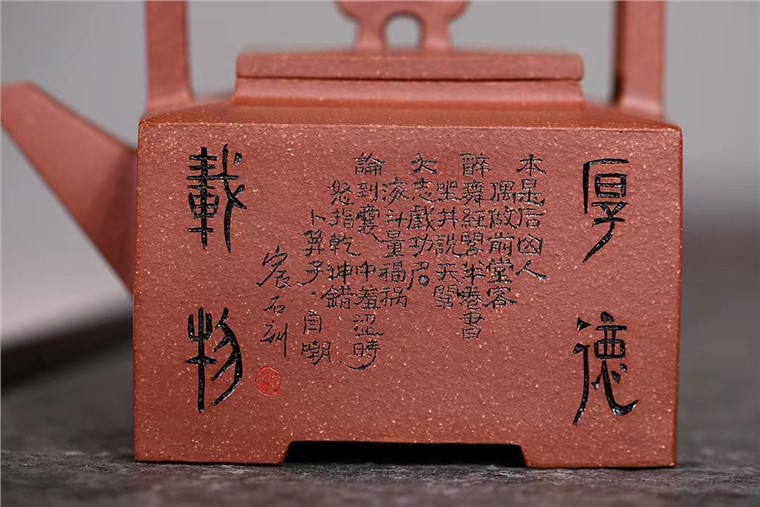 厚德
本是后山人
偶做前堂客
醉舞經閣半卷書
坐井説天闊
大志戲功名
海斗量福祸
論到囊中羞涩時
怒指乾坤錯
卜算子·自嘲
石刻
載物